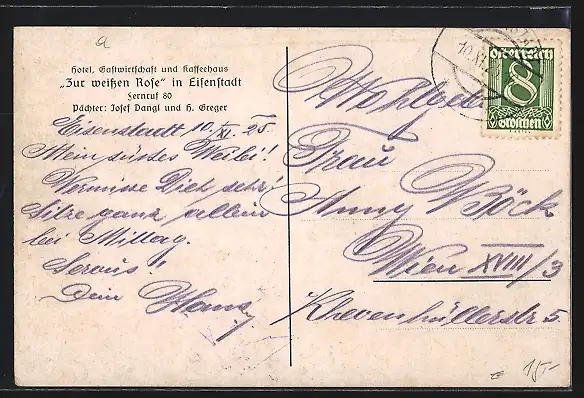 a
Hotel, Gastwirtschaft und Kaffeehaus
„Zur weißen Rose“ in Eisenstadt
Fernruf 80
Pächter: Josef Dangl und H. Greger
Eisenstadt 10/XI. 25
Mein süsses Weiberl!
Vermisse Dich sehr!
Sitze ganz allein
bei Mittag.
Servus!
Dein Hans
Österreich
8
Groschen
10.XI.
Wohlgeb
Frau
Anny Böck
Wien XVIII/3
Khevenhüllerstr 5
15,-